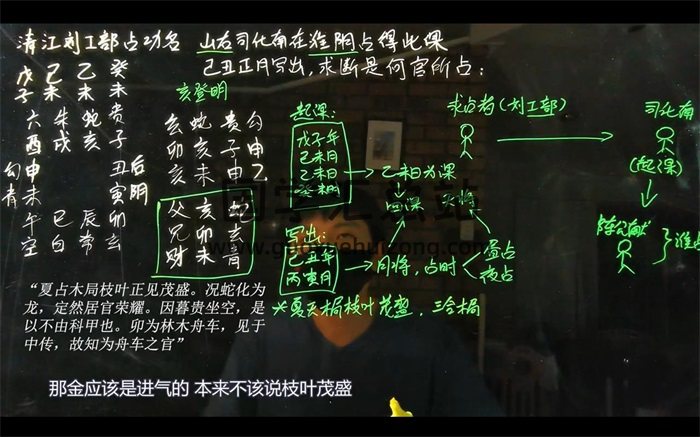 清江刘工部占功名 山右司化南在淮阴占得此课
己丑正月写出，求断是何官所占：
戊 己 乙 癸
子 未 未 未
亥登明
六 朱 蛇 贵
酉 戌 亥 子
勾 申 丑 后
青 未 寅 阴
午 巳 辰 卯
空 白 常 玄
玄 蛇 贵 勾
卯 亥 子 申
亥 未 申 乙
父 亥
兄 卯 玄
财 未 青
起课：
戊子年
己未月
乙未日
癸未时
乙未日为课
四课 天将
写出：
己丑年
丙寅月
月将，占时
昼占
夜占
求占者（刘工部）
司化南
（起课）
陈公献
谁占
夏天木局枝叶茂盛，三合局
“夏占木局枝叶正见茂盛。况蛇化为
龙，定然居官荣耀。因暮贵坐空，是
以不由科甲也。卯为林木舟车，见于
中传，故知为舟车之官”
国学汇总站
www.guoxuehuizong.com
那金应该是进气的 本来不该说枝叶茂盛